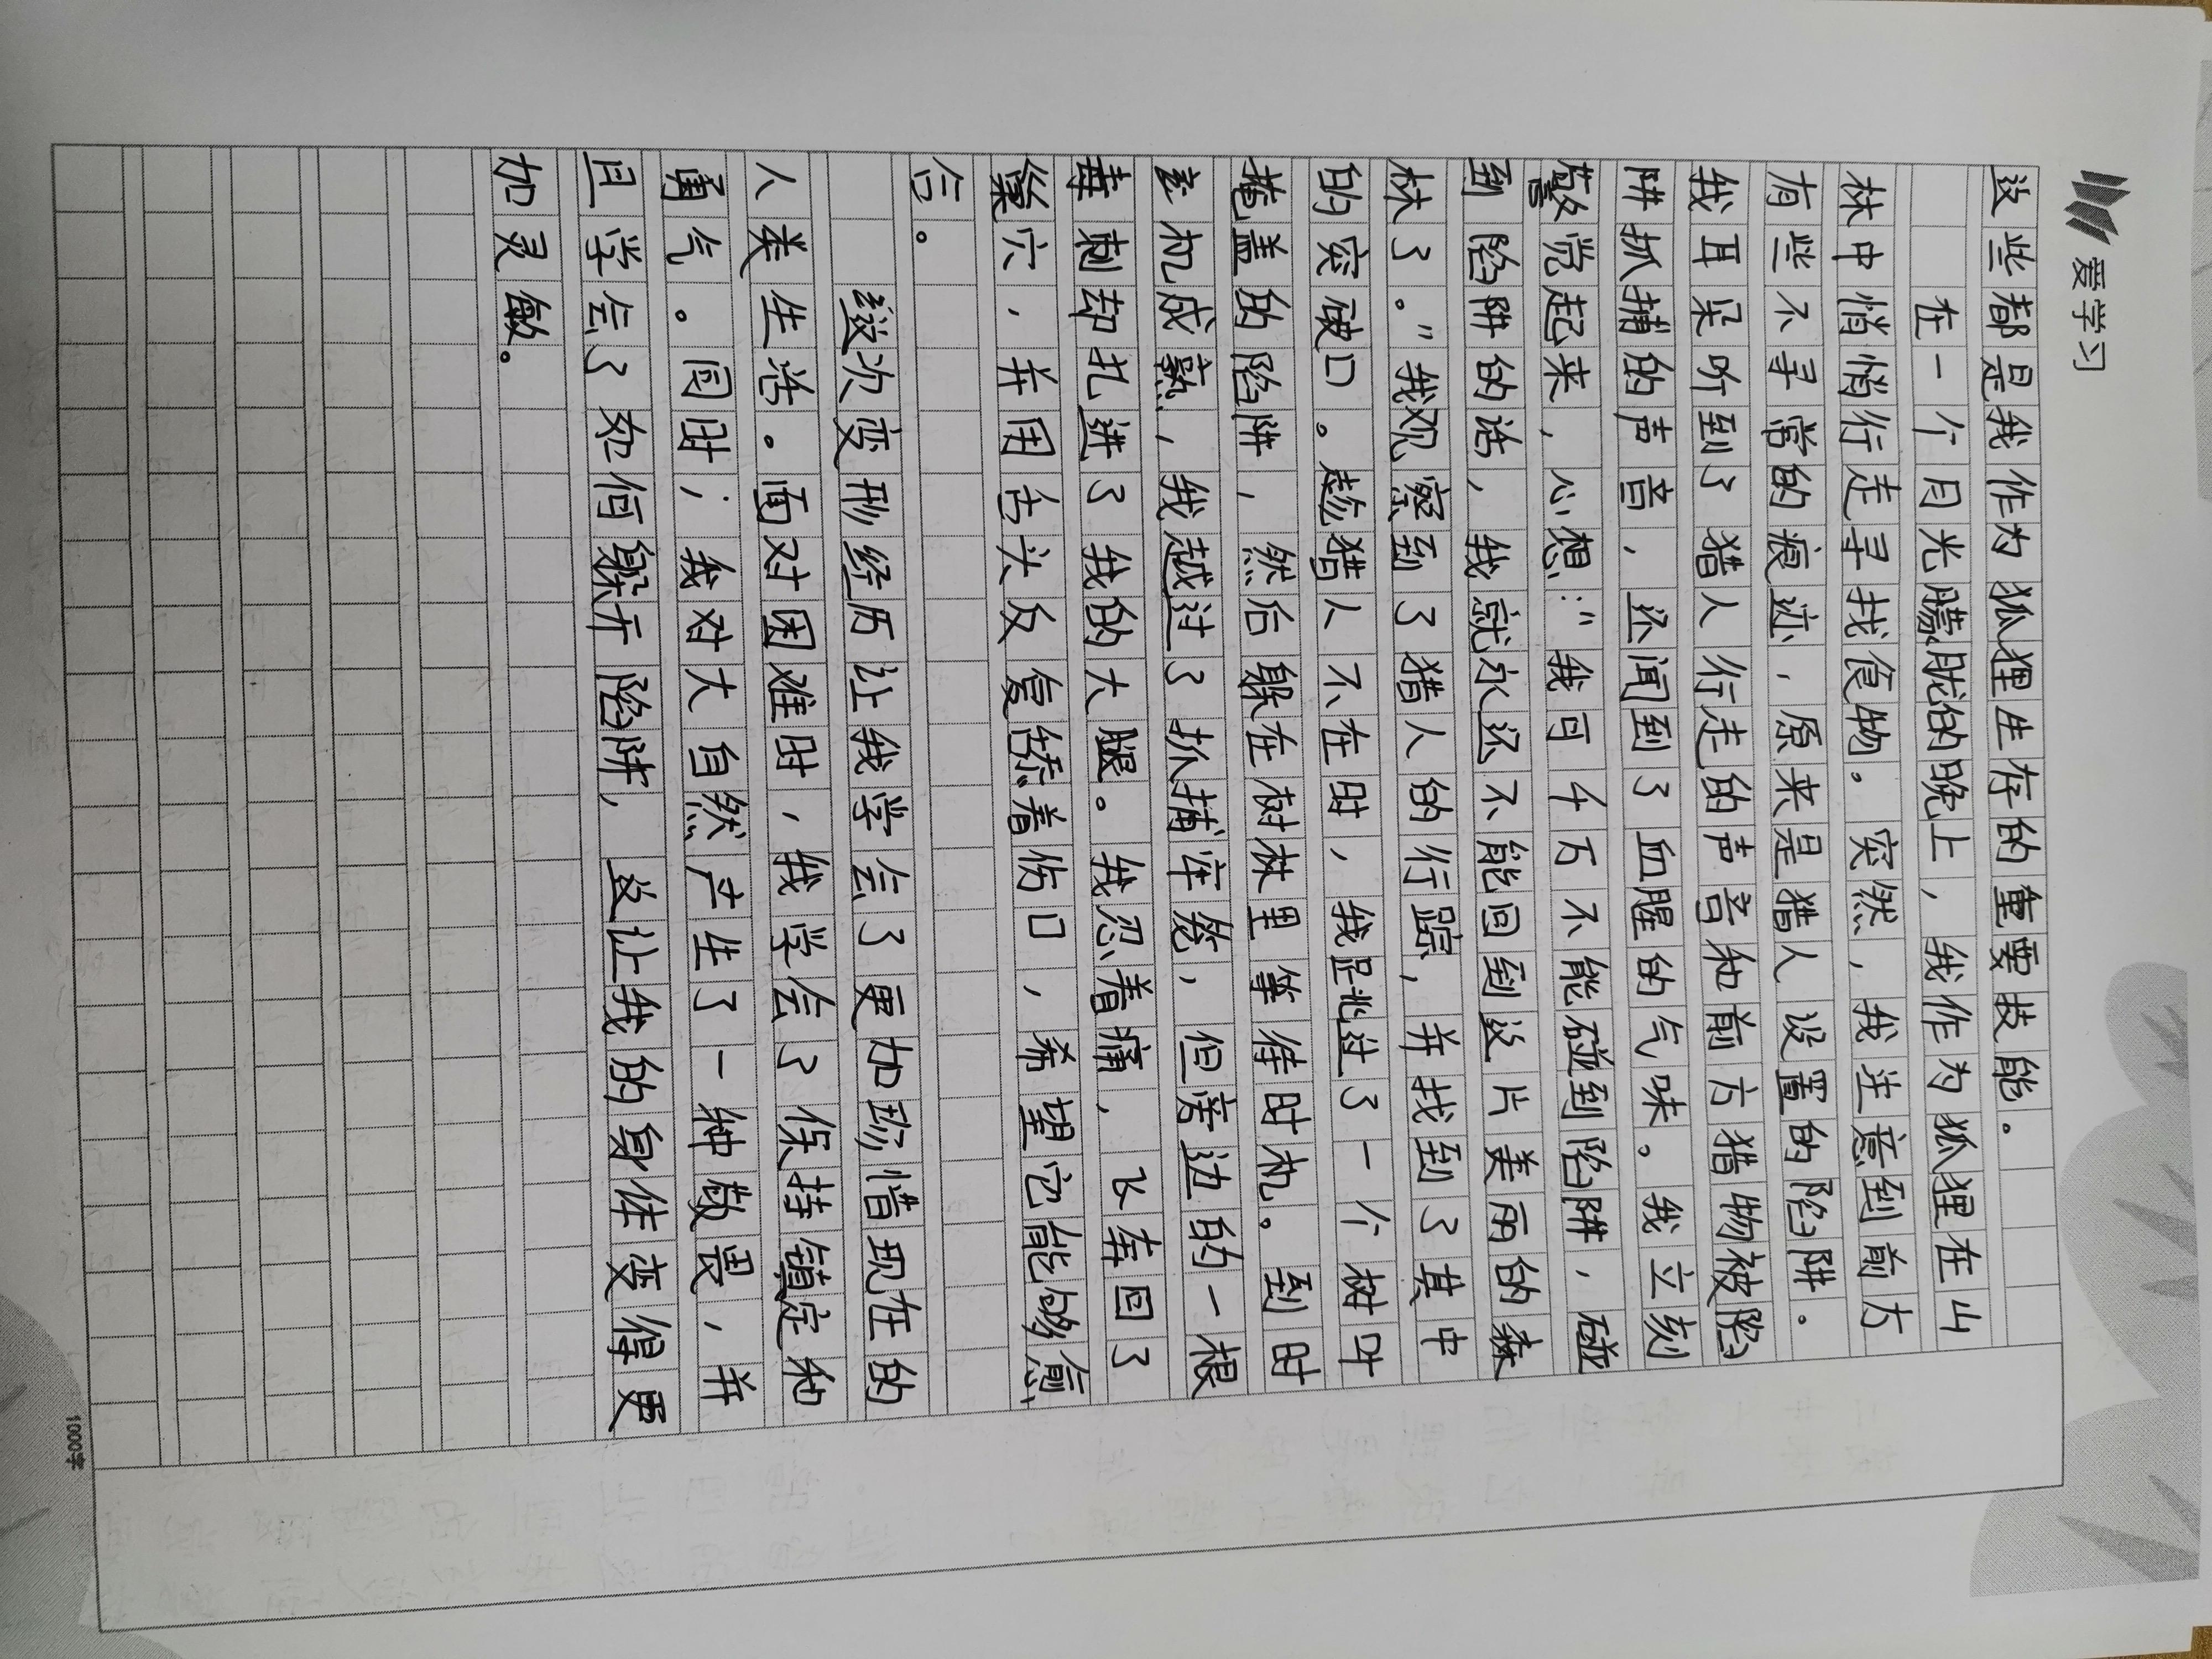 爱学习
这些都是我作为狐狸生存的重要技能。
在一个月光朦胧的晚上，我作为狐狸在山
林中悄悄行走寻找食物。突然，我注意到前方
有些不寻常的痕迹，原来是猎人设置的陷阱。
我耳朵听到了猎人行走的声音和前方猎物被陷
阱抓捕的声音，还闻到了血腥的气味。我立刻
警觉起来，心想：“我可千万不能碰到陷阱，碰
到陷阱的话，我就永远不能回到这片美丽的森
林了。”我观察到了猎人的行踪，并找到了其中
的突破口。趁猎人不在时，我跳过了一个树叶
掩盖的陷阱，然后躲在树林里等待时机。到时
机成熟，我越过了抓捕牢笼，但旁边的一根
毒刺却扎进了我的大腿。我忍着痛，飞奔回了
巢穴，并用舌头反复舔着伤口，希望它能够愈
合。
这次变形经历让我学会了更加珍惜现在的
人类生活。面对困难时，我学会了保持镇定和
勇气。同时，我对大自然产生了一种敬畏，并
且学会了如何躲开陷阱，这让我的身体变得更
加灵敏。
1000字